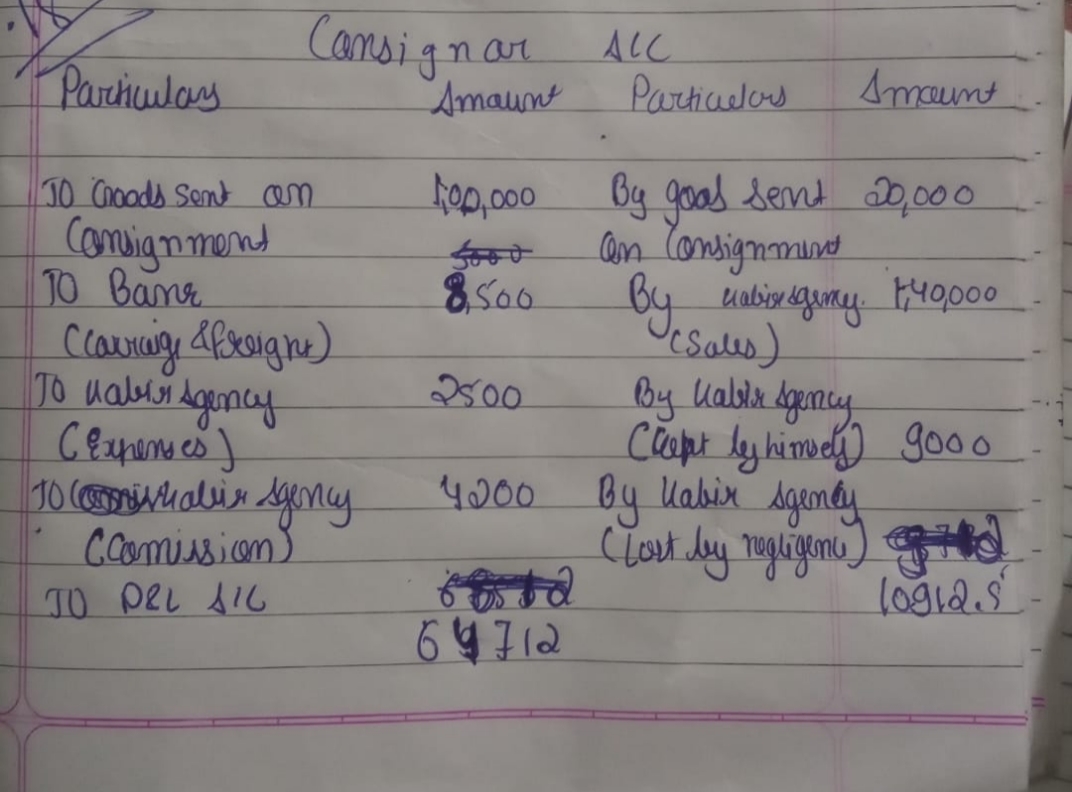 Consignar A/C
Particulars Amaunt Particulars Amaunt
TO Goods sent an 1,00,000 By goods sent 20,000
Consignment an Consignment
TO Bank 8,500 By Kabir Agency. 1,40,000
(Carriage & freight) (Sales)
TO Kabir Agency 2500 By Kabir Agency
(Expenses) (Kept by himself) 9000
TO Kabir Agency 4200 By Kabir Agency
(Comission) (Lost by negligence)
TO P&L A/C 10912.5
64712